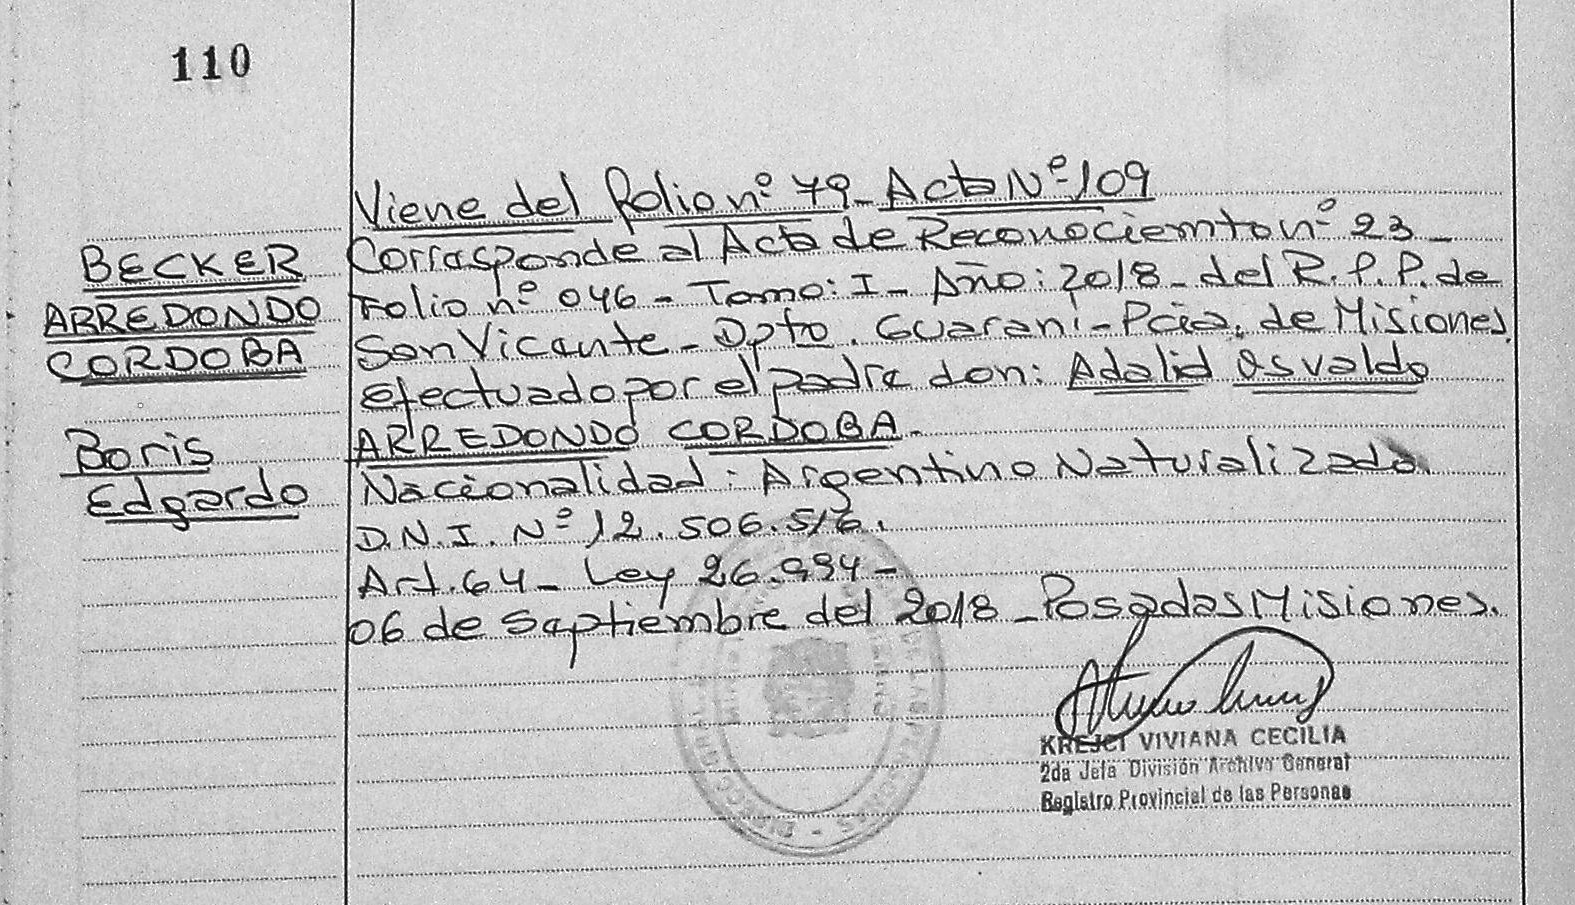 110
Viene del folio nº 79 - Acta Nº 109
BECKER
ARREDONDO
CORDOBA
Boris
Edgardo
Corresponde al Acta de Reconociemto nº 23 -
Folio nº 046 - Tomo: I - Año: 2018 - del R.P.P. de
San Vicente - Dpto. Guarani - Pcia. de Misiones.
efectuado por el padre don: Adalid Osvaldo
ARREDONDO CORDOBA.
Nacionalidad: Argentino Naturalizado.
D.N.I. Nº 12.506.516.
Art. 64 - Ley 26.994 -
06 de Septiembre del 2018 - Posadas Misiones.
KREJCI VIVIANA CECILIA
2da Jefa División Archivo General
Registro Provincial de las Personas